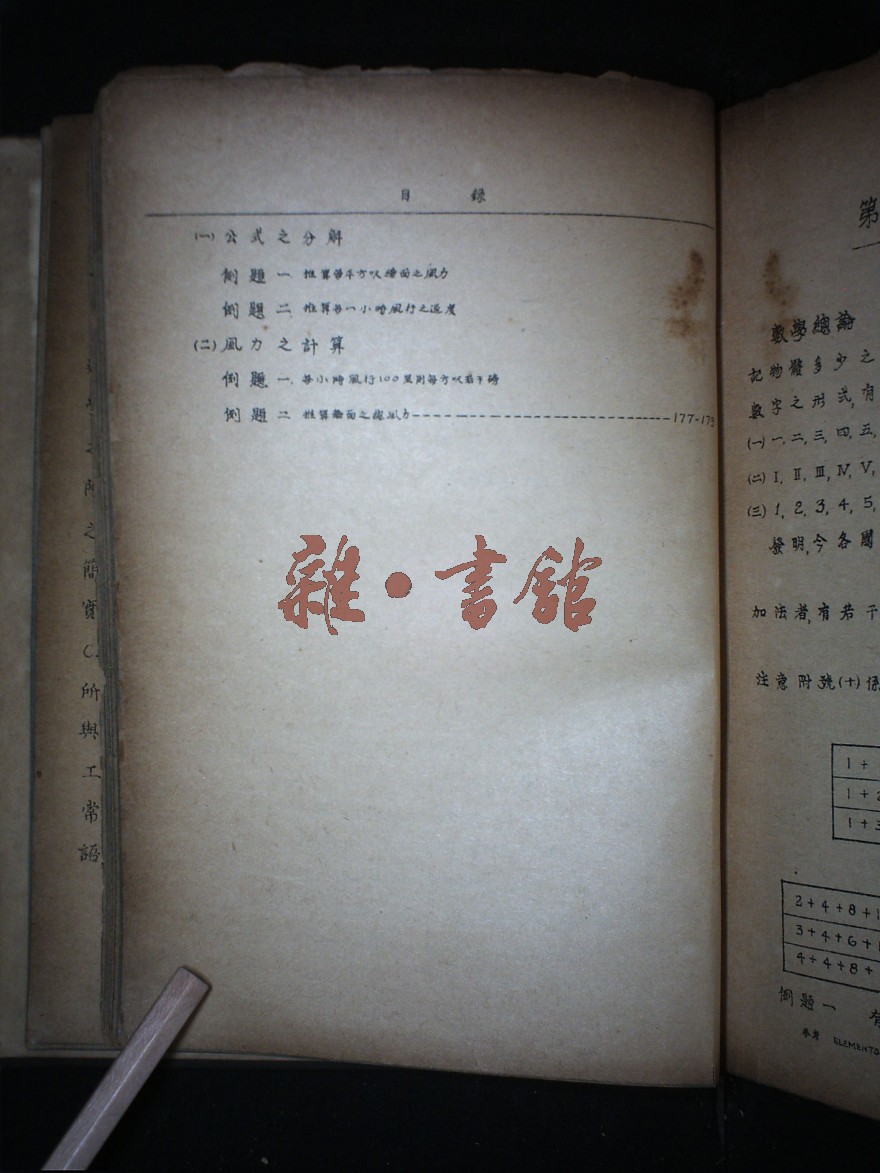 目 錄
(一)公式之分解
例題一 推算每平方呎牆面之風力
例題二 推算每一小時風行之速度
(二)風力之計算
例題一 每小時風行100里則每方呎若干磅
例題二 推算牆面之總風力 177-17
雜·書館
之
簡
實
C.
所
與
工
常
語
第
數學總論
記物體多少之
數字之形式,有
(一)一,二,三,四,五,
(二)I,II,III,IV,V,
(三)1,2,3,4,5,
發明,今各國
加法者,有若干
注意附號(十)係
1+
1+2
1+3
2+4+8+1
3+4+6+
4+4+8+
例題一 有
參考 ELEMENTO